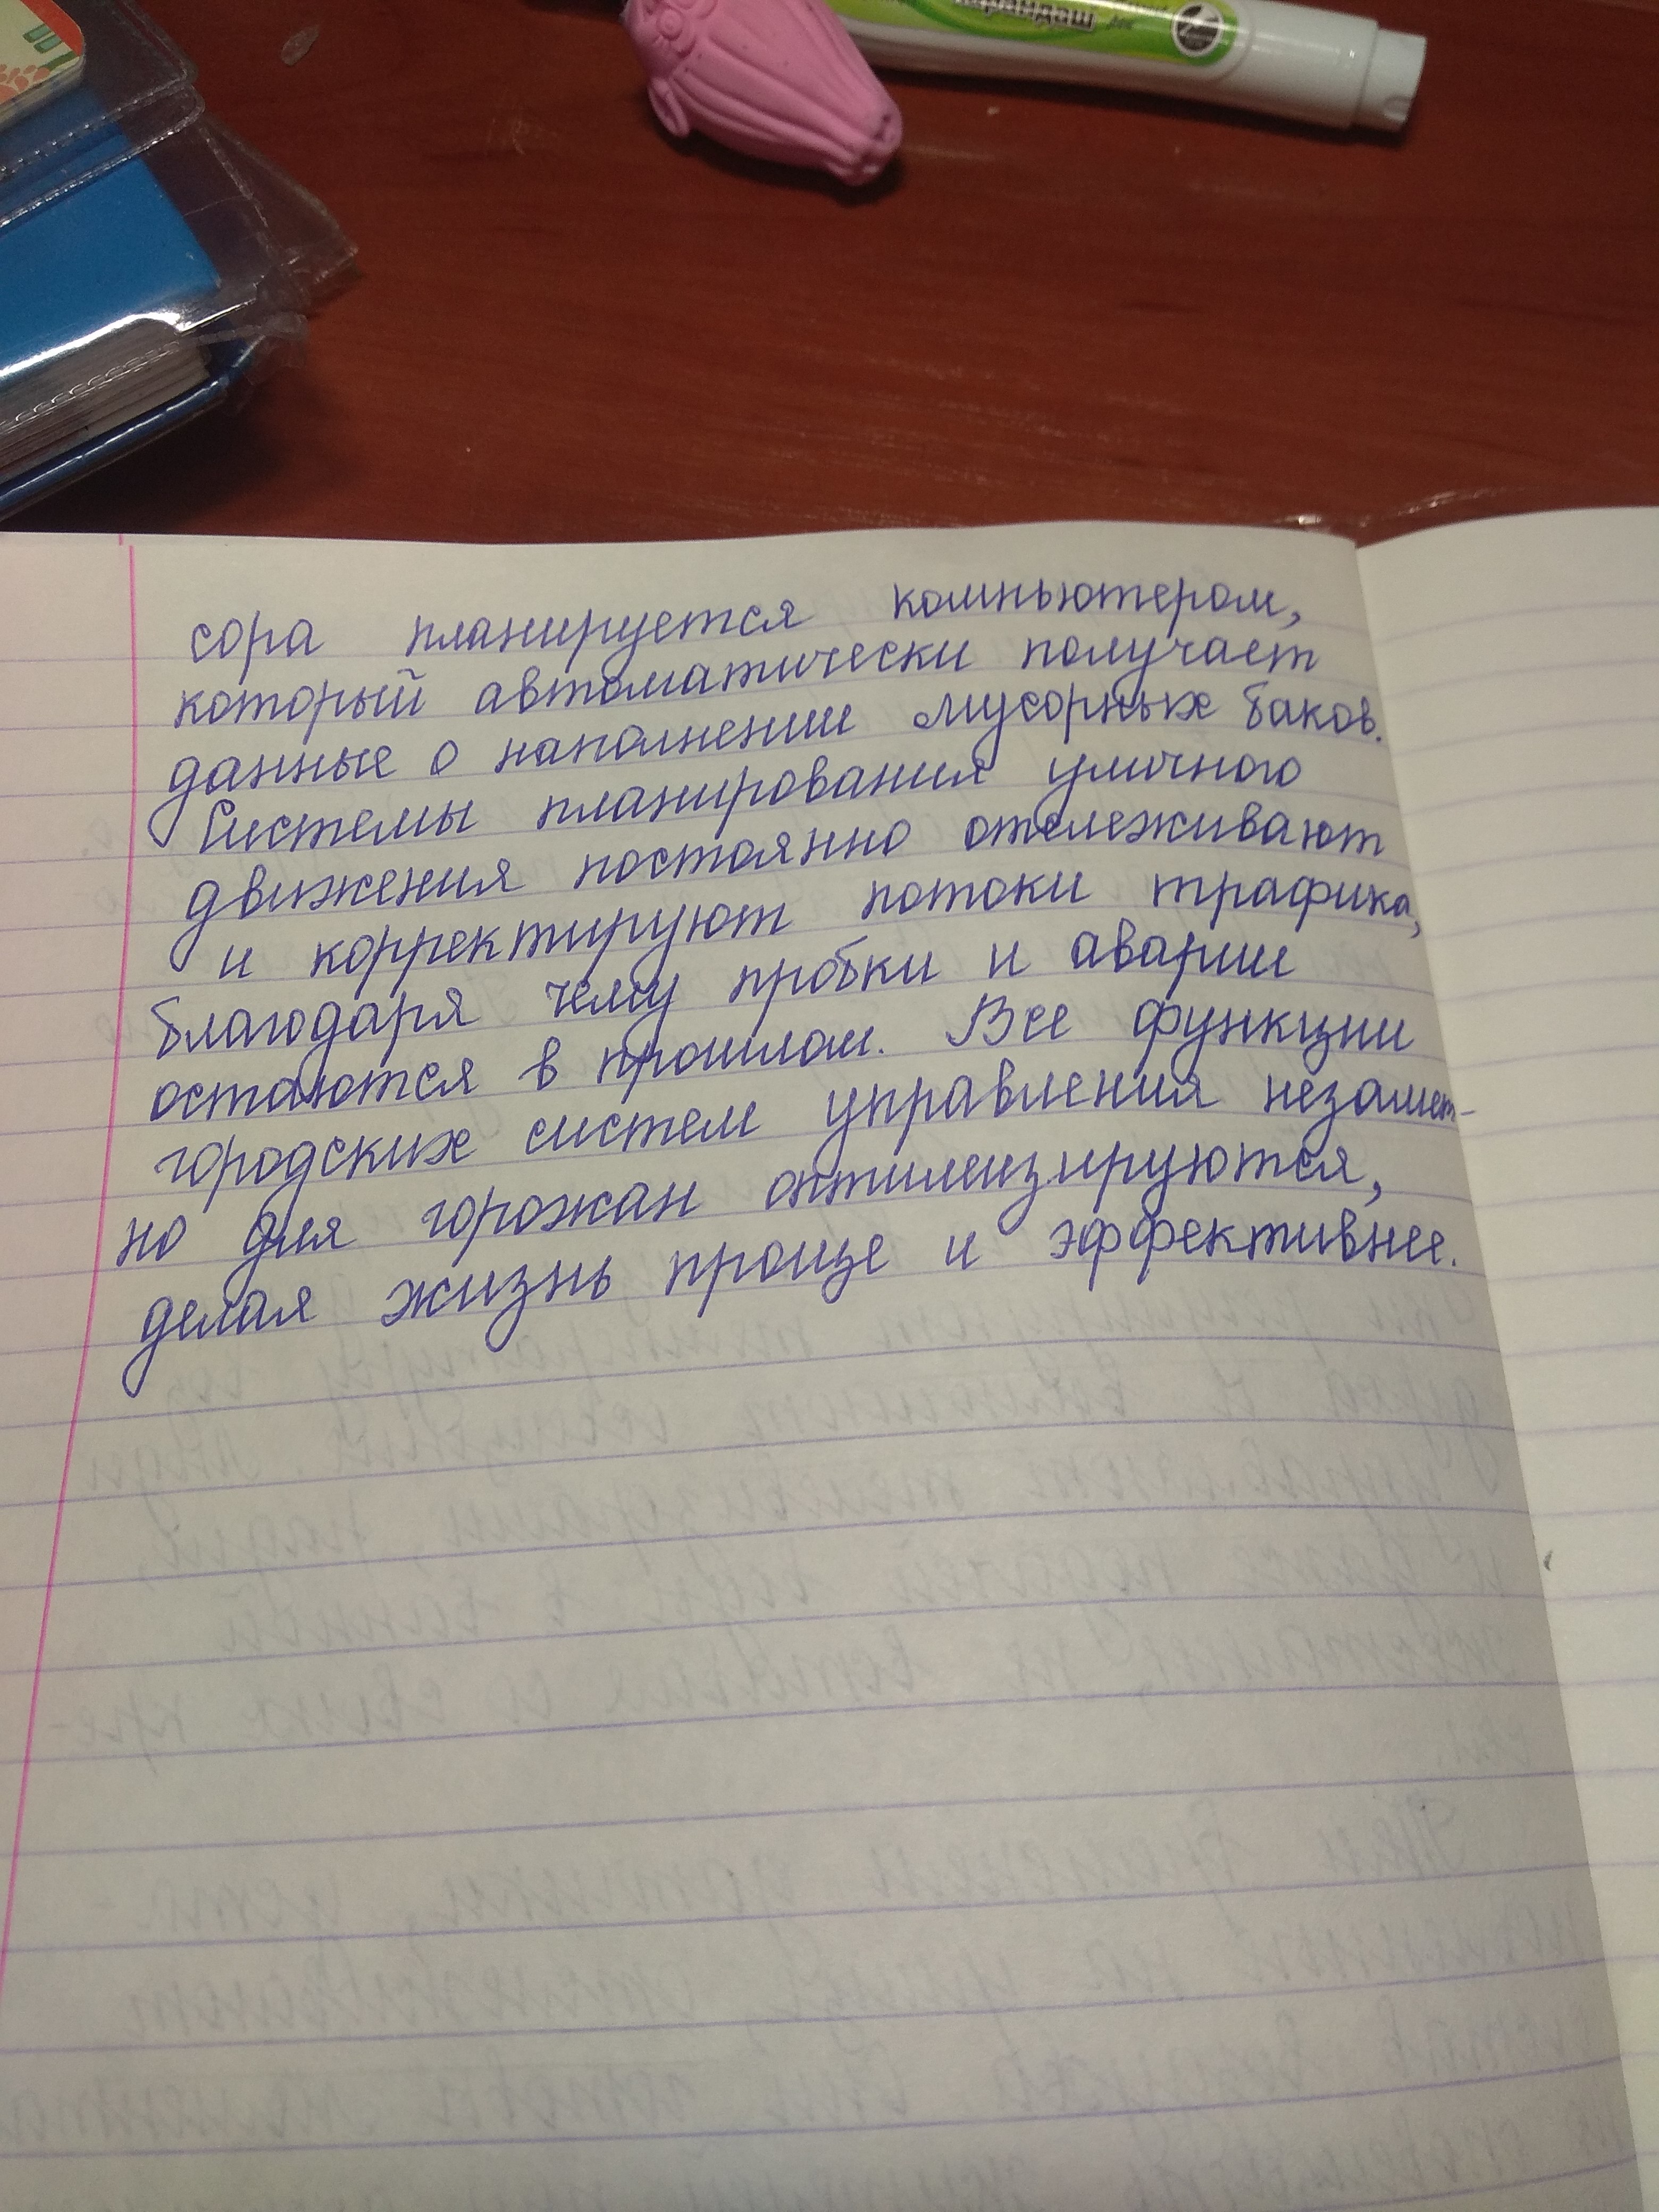 карандаш
сора планируется компьютером,
который автоматически получает
данные о наполнении мусорных баков.
Системы планирования уличного
движения постоянно отслеживают
и корректируют потоки трафика,
благодаря чему пробки и аварии
остаются в прошлом. Все функции
городских систем управления незамет-
но для горожан оптимизируются,
делая жизнь проще и эффективнее.